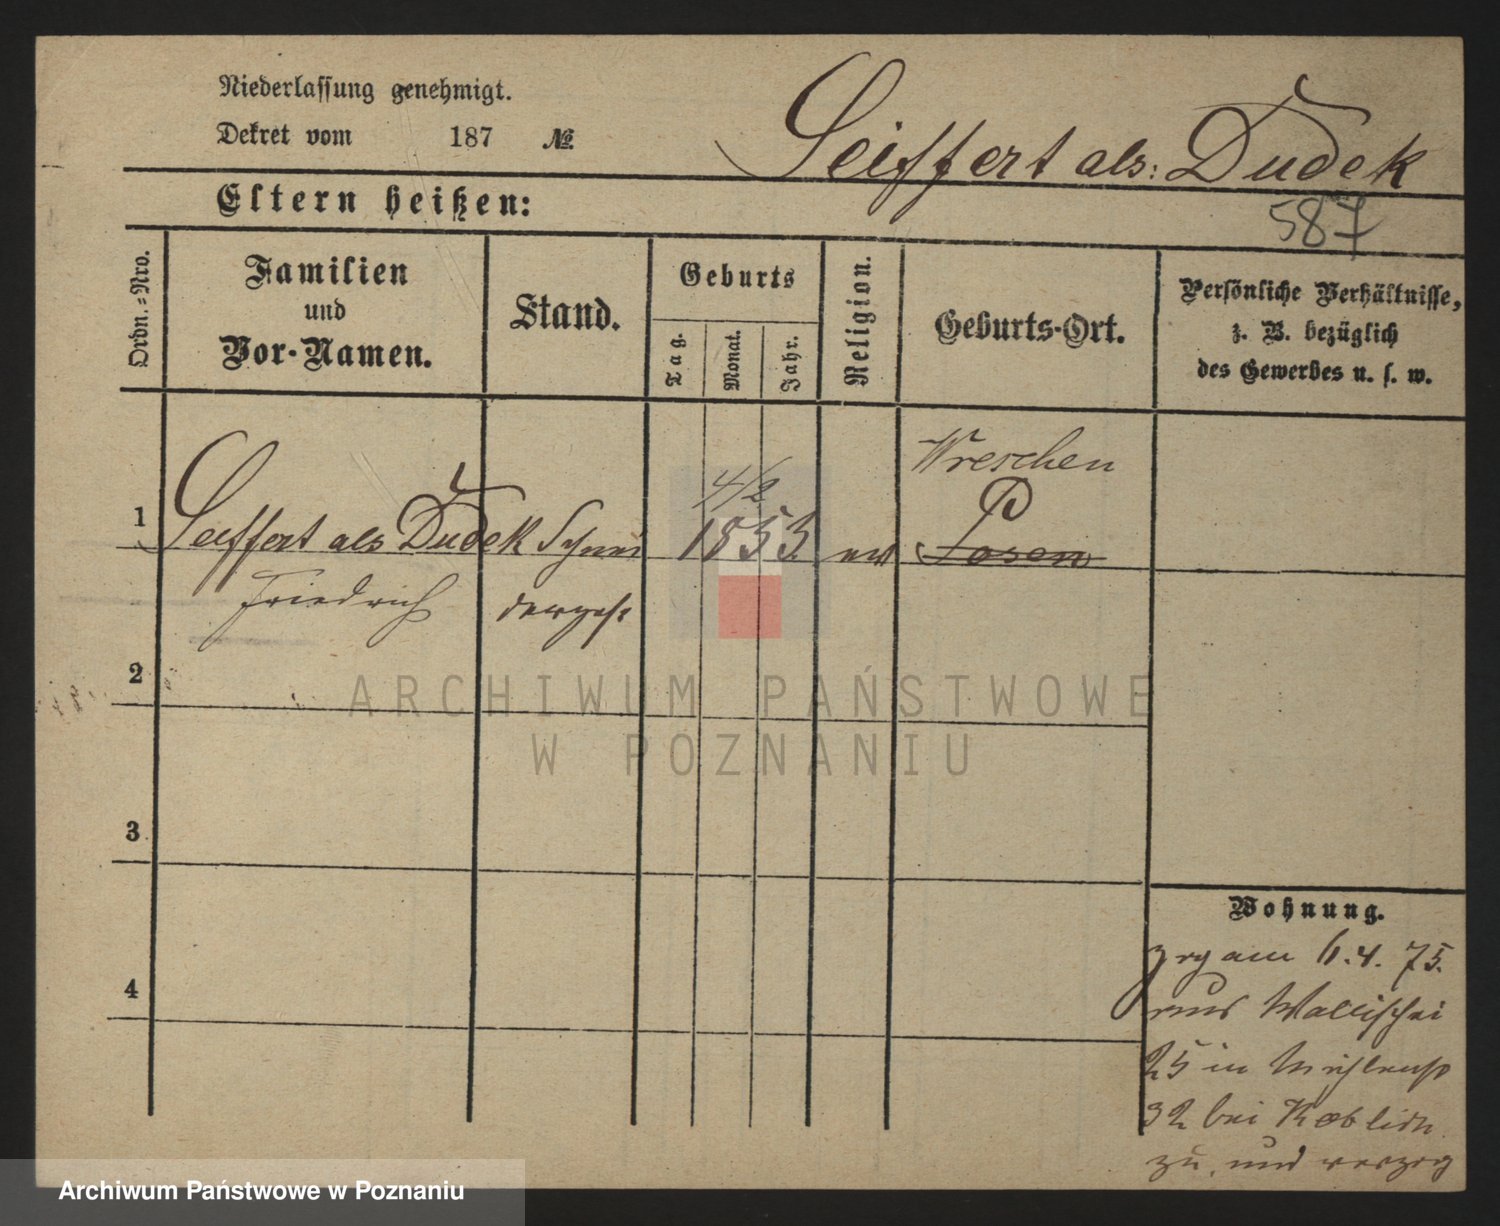 Niederlassung genehmigt.
Dekret vom 187 №.
Seiffert als: Dudek
Eltern heißen:
587
Ordn.=Nro.
Familien
und
Vor-Namen.
Stand.
Geburts
Tag.
Monat.
Jahr.
Religion.
Geburts-Ort.
Persönliche Verhältnisse,
z. B. bezüglich
des Gewerbes u. s. w.
Wreschen
4/2
1 Seiffert als Dudek Schnei 1853 ev Posen
Friedrich dergesl
2
3
4
Wohnung.
zog am 6.4.75.
aus Wallischei
25 in Mühlenst
32 bei Koblidn
zu, und verzog
ARCHIWUM PAŃSTWOWE
W POZNANIU
Archiwum Państwowe w Poznaniu